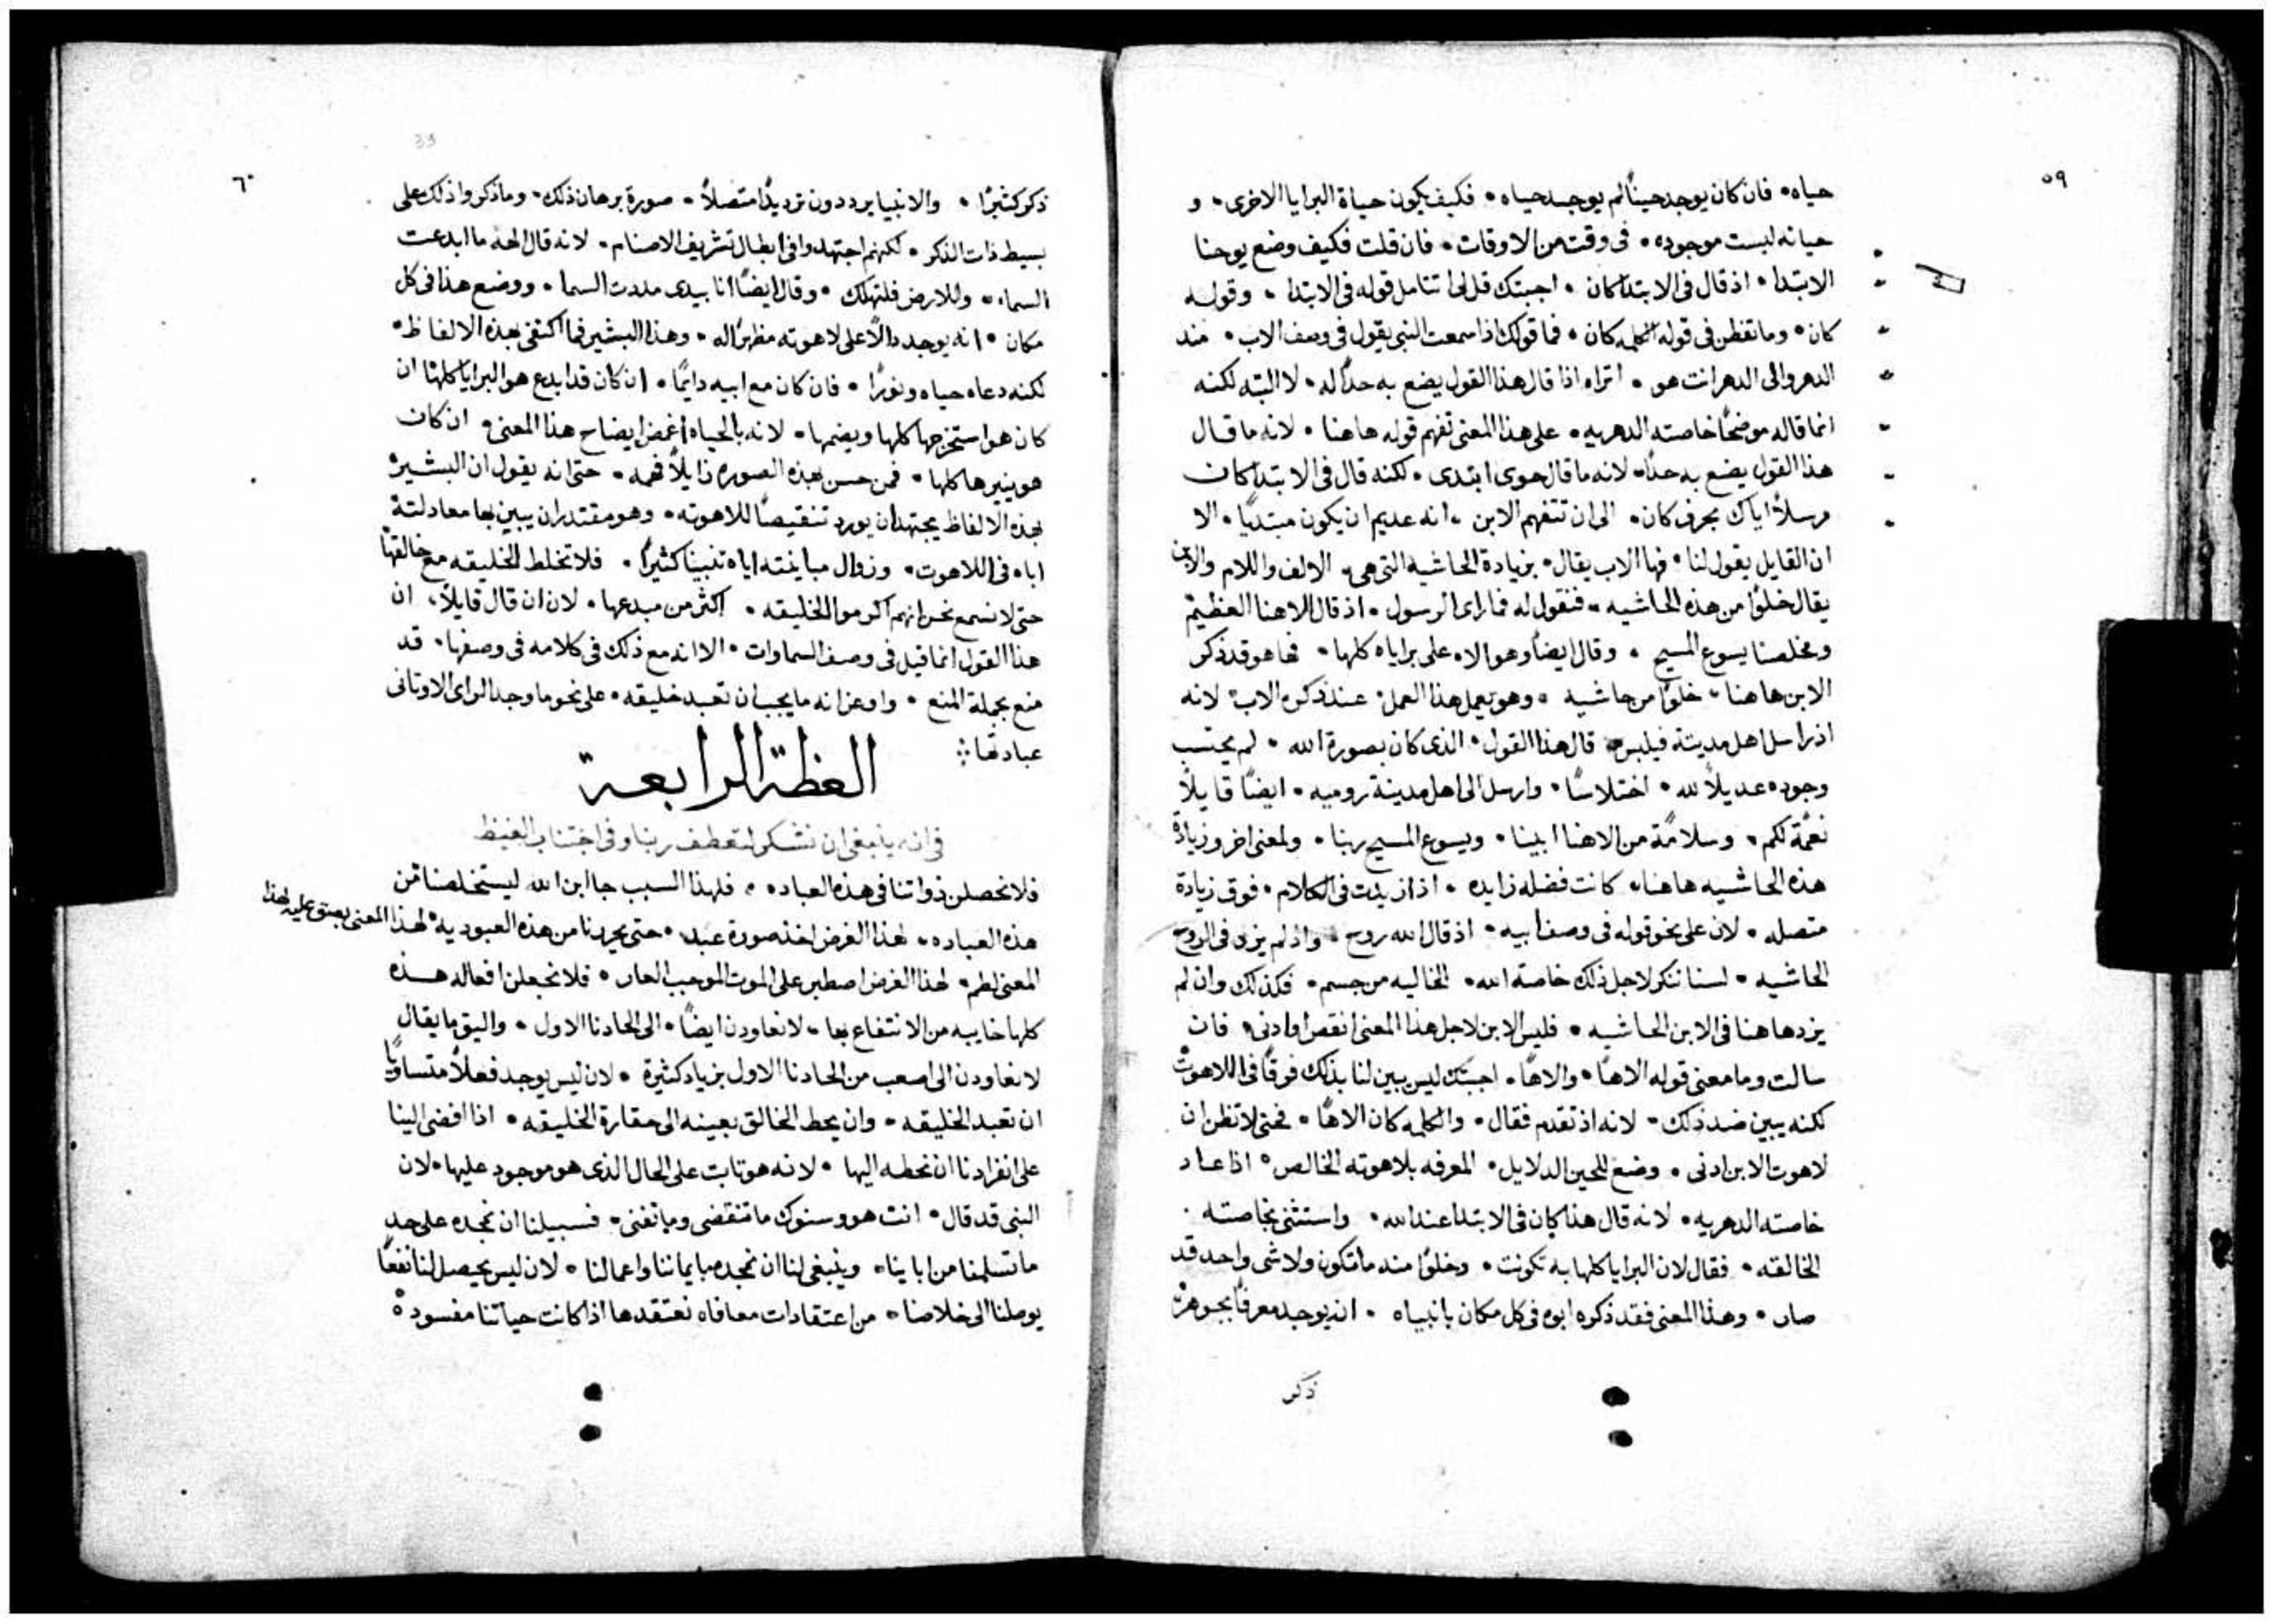 ٥٩
حياه · فان كان يوجد حينًا لم يوجد حياه · فكيف يكون حياة البرايا الاخرى · و
حياته ليست موجوده · فى وقت من الاوقات · فان قلت فكيف وضع يوحنا
الابتدا · اذ قال فى الابتدا كان · اجبتك قل لى اتتامل قوله فى الابتدا · وقوله
كان · وما تفطن فى قوله الكلمه كان · فما قولك اذا سمعت النبى يقول فى وصف الاب · منذ
الدهر والى الدهر انت هو · اتراه اذا قال هذا القول يضع به حدًا له · لا البته لكنه
انما قاله موضحًا خاصته الدهريه · على هذا المعنى تفهم قوله هاهنا · لانه ما قال
هذا القول يضع به حدًا · لانه ما قال حوى ابتدى · لكنه قال فى الابتدا كان
مرسلًا اياك بحرف كان · الى ان تتفهم الابن · انه عديم ان يكون مبتديًا · الا
ان القايل يقول لنا · فها الاب يقال · بزيادة الحاشية التى هى · الالف واللام والابن
يقال خلوًا من هذه الحاشيه · فنقول له فما راى الرسول · اذ قال الاهنا العظيم
ومخلصنا يسوع المسيح · وقال ايضًا وهو الاه على براياه كلها · فها هو قد ذكر
الابن هاهنا · خلوًا من حاشيه · وهو يعمل هذا العمل · عند ذكره الاب · لانه
اذ راسل اهل مدينة فيلبس · قال هذا القول · الذى كان بصورة الله · لم يحتسب
وجوده عديلًا لله · اختلاسًا · وارسل الى اهل مدينة روميه · ايضًا قايلًا
نعمًة لكم · وسلامًة من الاهنا ابينا · ويسوع المسيح ربنا · ولمعنى اخر وزيادة
هذه الحاشيه هاهنا · كانت فضله زايده · اذ ازيدت فى الكلام · فوق زيادة
متصله · لان على نحو قوله فى وصف ابيه · اذ قال الله روح · واذ لم يزد فى الروح
الحاشيه · لسنا ننكر لاجل ذلك خاصة الله · الخاليه من جسم · فكذلك وان لم
يزد هاهنا فى الابن الحاشيه · فليس الابن لاجل هذا المعنى انقص او ادنى · فان
سالت وما معنى قوله الاهًا · والاهًا · اجبتك ليس يبين لنا بذلك فوقًا فى اللاهوت
لكنه يبين ضد ذلك · لانه اذ تقدم فقال · والكلمه كان الاهًا · فحتى لا تظن ان
لاهوت الابن ادنى · وضع للحين الدلايل · المعرفه بلاهوته الخالص · اذ اعاد
خاصته الدهريه · لانه قال هذا كان فى الابتدا عند الله · واستثنى بخاصته
الخالقه · فقال لان البرايا كلها به تكونت · وخلوًا منه ما تكون ولا شى واحد قد
صار · وهذا المعنى فقد ذكره ابوه فى كل مكان بانبياه · انه يوجد معرفًا بجوهره
ذكر
٦٠
33
ذكر كثيرًا · والانبيا يرددون ترديدًا متصلًا · صورة برهان ذلك · وما ذكروا ذلك على
بسيط ذات الذكر · لكنهم اجتهدوا فى ابطال تشريف الاصنام · لانه قال الهة ما ابدعت
السماء · وللارض فلتهلك · وقال ايضًا انا بيدى مددت السما · ووضع هذا فى كل
مكان · انه يوجد دالًا على لاهوته مظهرًا له · وهذا البشير فما اكتفى بهذه الالفاظ ·
لكنه دعاه حياه ونورًا · فان كان مع ابيه دايمًا · ان كان قد ابدع هو البرايا كلها ان
كان هو استخرجها كلها ويضمها · لانه بالحياه اغمض ايضاح هذا المعنى · ان كان
هو ينيرها كلها · فمن حسن بهذه الصوره زايلًا فهمه · حتى انه يقول ان البشير
بهذه الالفاظ يجتهد ان يورد تنقيصًا للاهوته · وهو مقتدر ان يبين بها معادلته
اباه فى اللاهوت · وزوال مباينته اياه تبيينًا كثيرًا · فلا تخلط الخليقه مع خالقها
حتى لا نسمع نحن انهم اكرموا الخليقه · اكثر من مبدعها · لان ان قال قايلًا · ان
هذا القول انما قيل فى وصف السماوات · الا انه مع ذلك فى كلامه فى وصفها · قد
منع بجملة المنع · واوعز انه ما يجب ان تعبد خليقه · على نحو ما وجد الراى الاوثانى
عبادتها ⁘
العظة الرابعة
فى انه ينبغى ان نشكر لتعطف ربنا وفى اجتناب الغيظ
فلا نحصلن ذواتنا فى هذه العباده · فلهذا السبب جا ابن الله ليستخلصنا من
هذه العباده · لهذا الغرض اخذ صورة عبد · حتى يحررنا من هذه العبوديه · لهذا المعنى بصق عليه لهذا
المعنى لطم · لهذا الغرض اصطبر على الموت الموجب العار · فلا نجعلن افعاله هذه
كلها خايبه من الانتفاع بها · لا نعاودن ايضًا · الى الحادنا الاول · واليق ما يقال
لا نعاودن الى اصعب من الحادنا الاول بزياد كثيرة · لان ليس يوجد فعلًا متساويًا
ان تعبد الخليقه · وان يحط الخالق بعينه الى حقارة الخليقه · اذا افضى الينا
على انفرادنا ان نحطه اليها · لانه هو ثابت على الحال الذى هو موجود عليها · لان
النبى قد قال · انت هو وسنوك ما تنقضى وما تفنى · فسبيلنا ان نمجده على حد
ما تسلمنا من ابايناه · وينبغى لنا ان نمجده بايماننا واعمالنا · لان ليس يحصل لنا نفعًا
يوصلنا الى خلاصنا · من اعتقادات معافاه نعتقدها اذا كانت حياتنا مفسوده